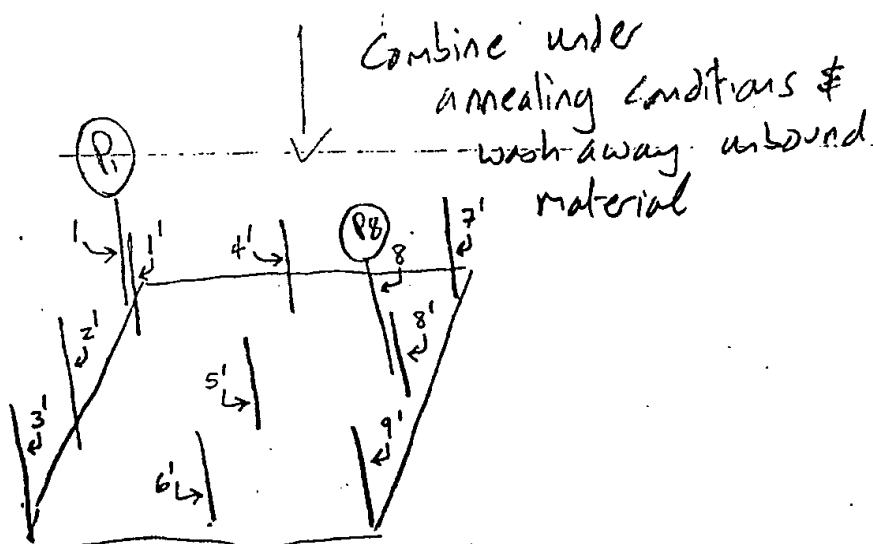 Combine under
annealing conditions &
wash away unbound
material
P1
1
1'
2'
3'
4'
5'
6'
P8
8
8'
7'
9'